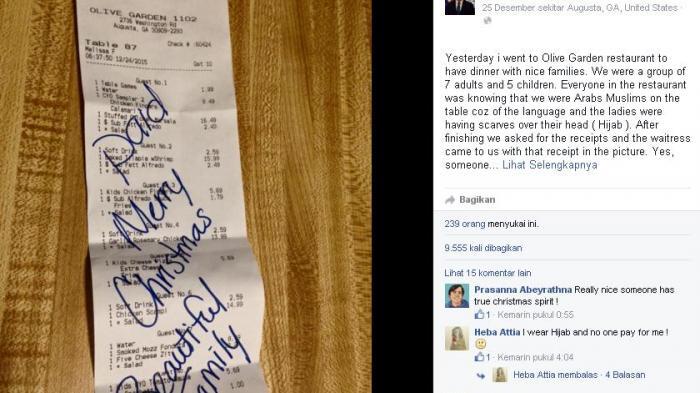 OLIVE GARDEN 1102
2736 Washington Rd
Augusta, GA 30909-2293
Table 87
Check #
Melissa F
06:37:50 12/24/2015
Gst 10
Guest No.1
1 Table Games 1.99
1 Water
1 CYO Sampler 2 9.49
Chicken Fingers
Calamari
1 Stuffed
16.49
1 $ Sub Fett Alfredo 2.49
1 * Salad
Guest No.2
1 Soft Drink 2.59
15.99
2.49
1 * Salad
Guest No.3
1 Kids Chicken 5.69
1 $ Sub Alfredo 1.79
Fries
1 * Salad
Guest No.4
1 Soft 2.59
Rosemary Chicken
1 * Salad
1 Kids Cheese 5.69
Extra Cheese
Fries
1 Soft Drink 2.59
1 Chicken Scampi
1 * Salad
1 Water
1 Smoked Mozz
1 Five Cheese
1 * Salad
1.00
Paid
Merry
Christmas
Beautiful
Family
25 Desember sekitar Augusta, GA, United States ·
Yesterday i went to Olive Garden restaurant to
have dinner with nice families. We were a group of
7 adults and 5 children. Everyone in the restaurant
was knowing that we were Arabs Muslims on the
table coz of the language and the ladies were
having scarves over their head ( Hijab ). After
finishing we asked for the receipts and the waitress
came to us with that receipt in the picture. Yes,
someone... Lihat Selengkapnya
Bagikan
239 orang menyukai ini.
9.555 kali dibagikan
Lihat 15 komentar lain
Prasanna Abeyrathna Really nice someone has
true christmas spirit !
1 · Kemarin pukul 0:55
Heba Attia I wear Hijab and no one pay for me !
1 · Kemarin pukul 4:04
Heba Attia membalas · 4 Balasan